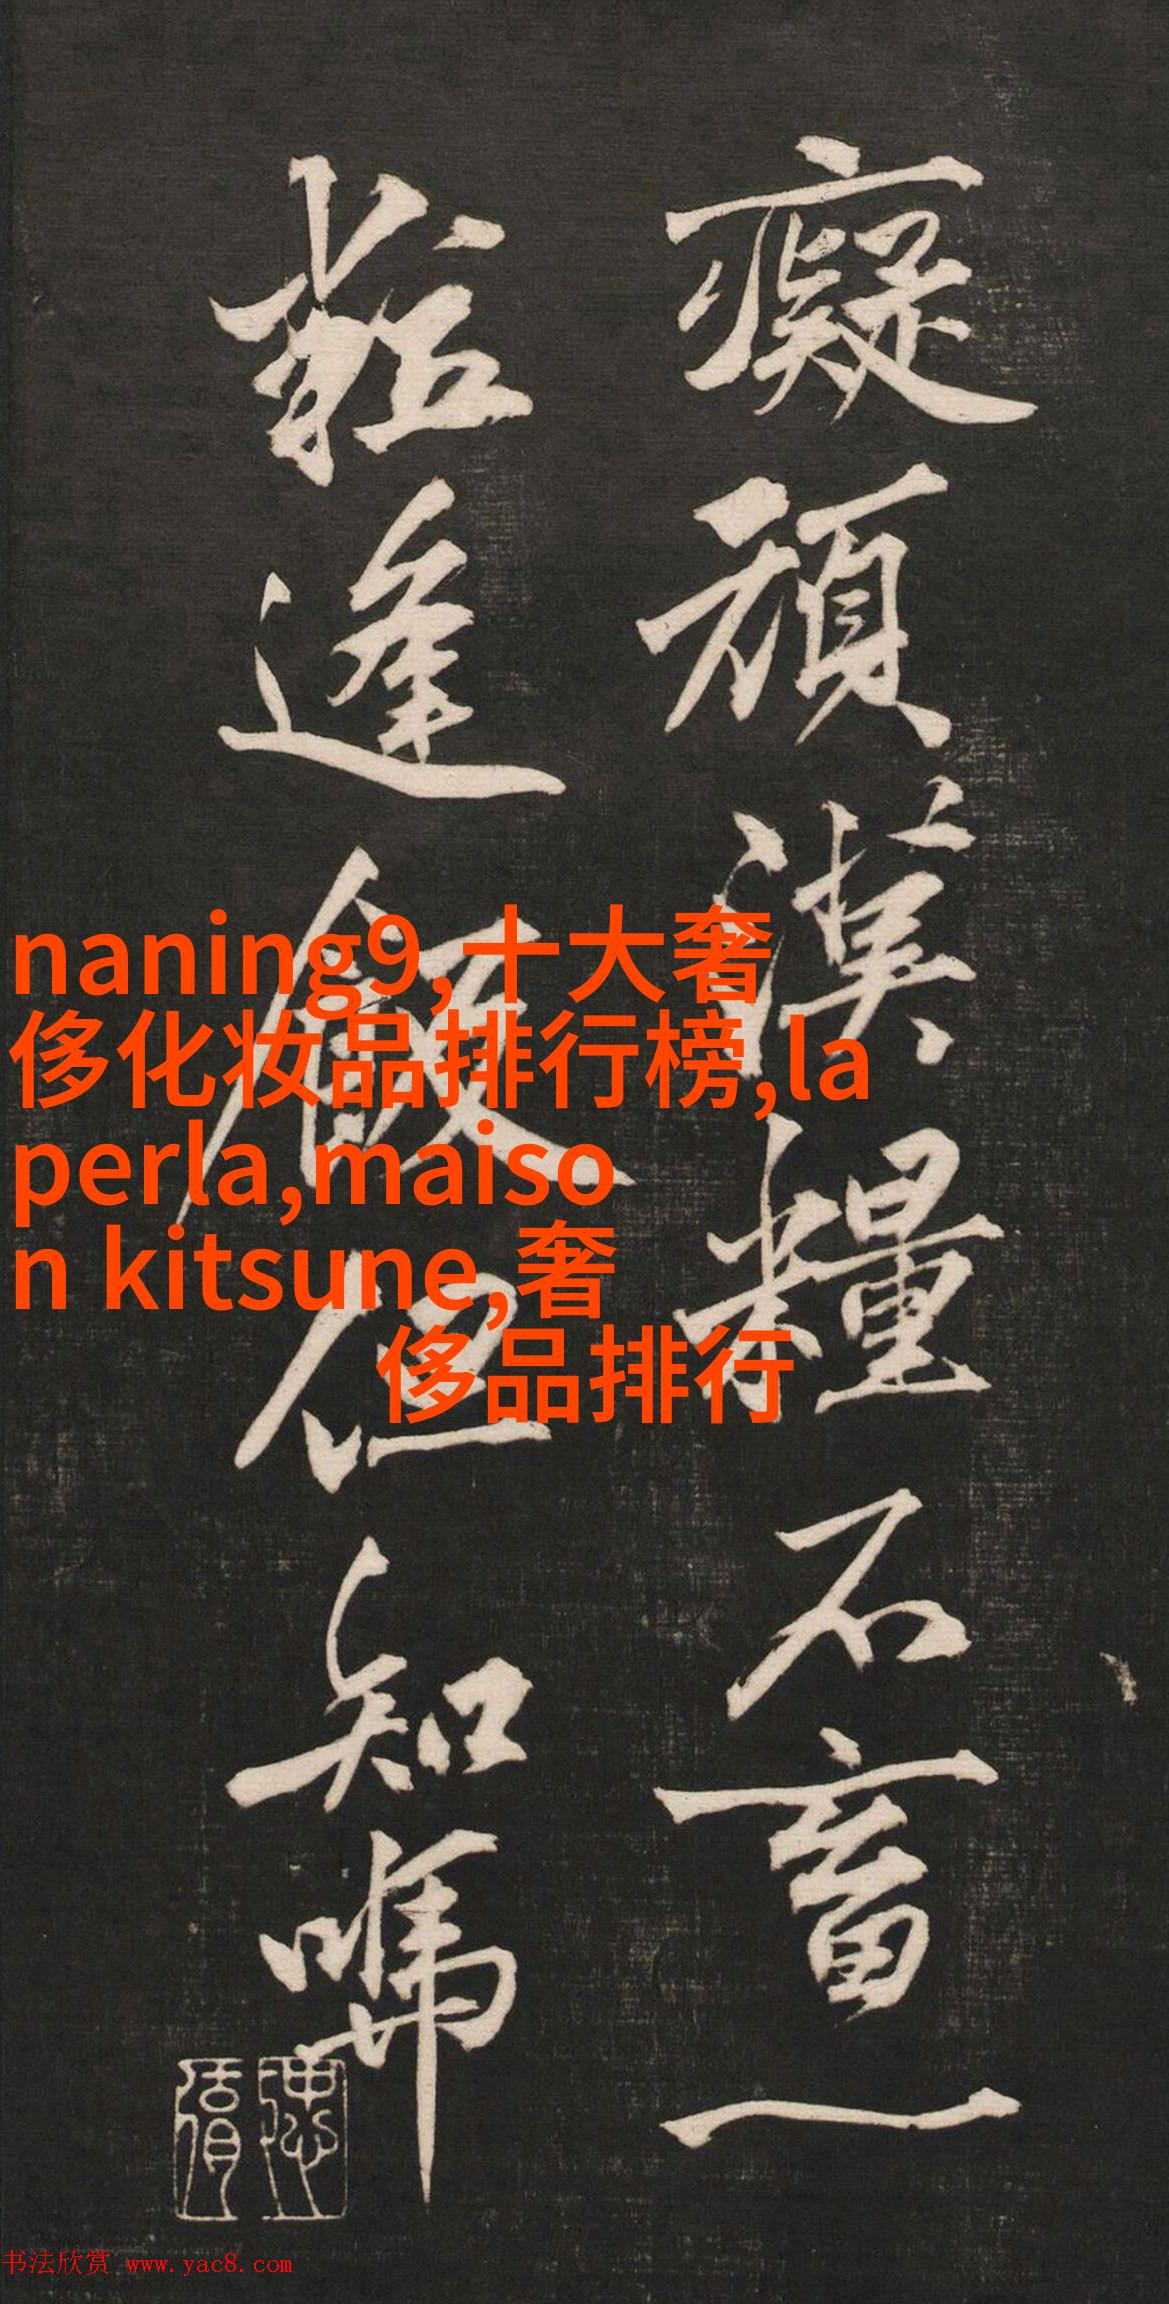 癡頑漢糧不畜一
粒逢飯但知
naning9,十大奢
侈化妆品排行榜,la
perla,maiso
n kitsune,奢
侈品排行
书法欣赏 www.yac8.com